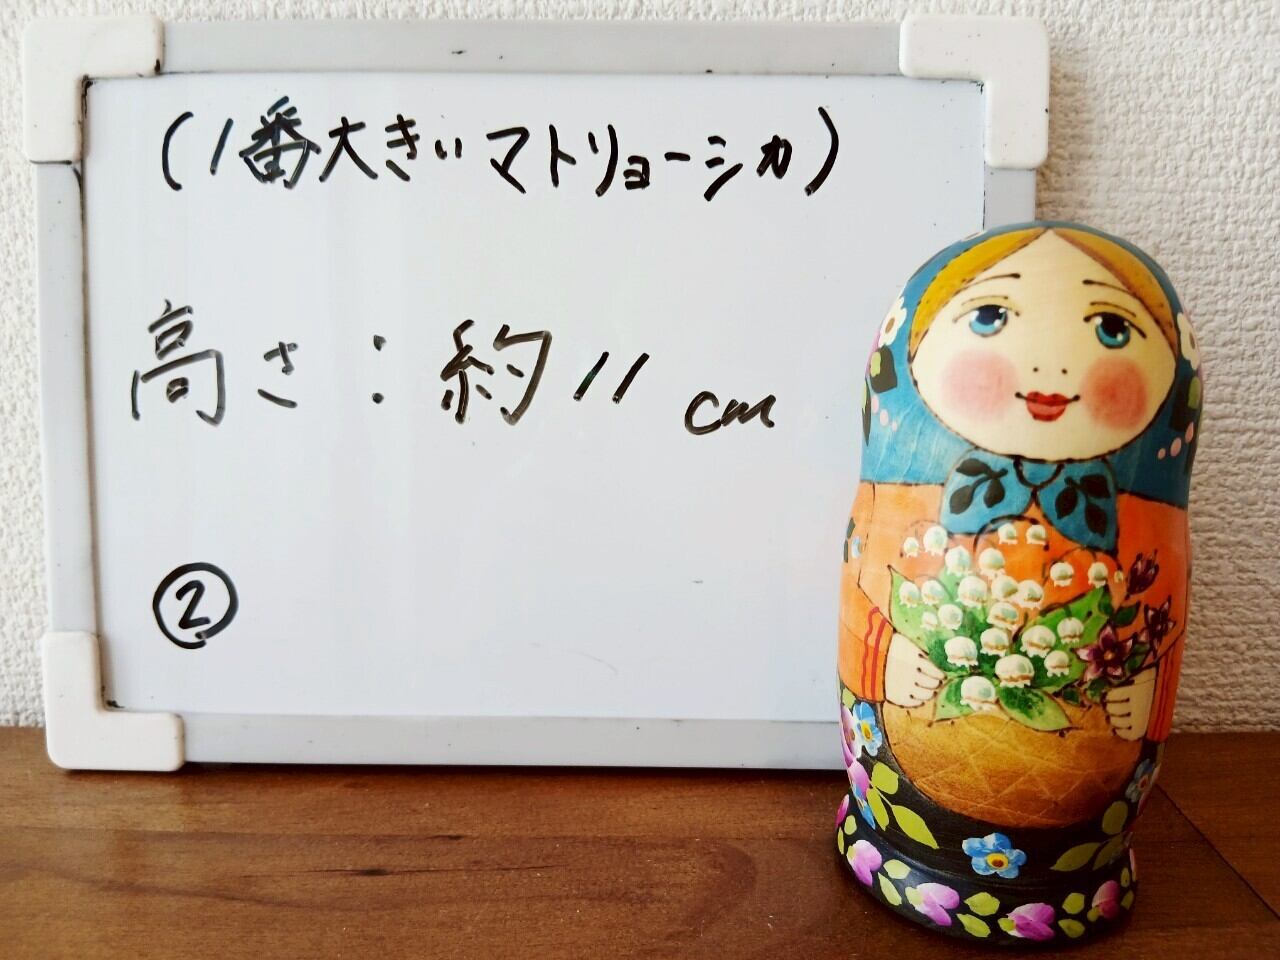 (1番大きいマトリョーシカ)
高さ:約11cm
②